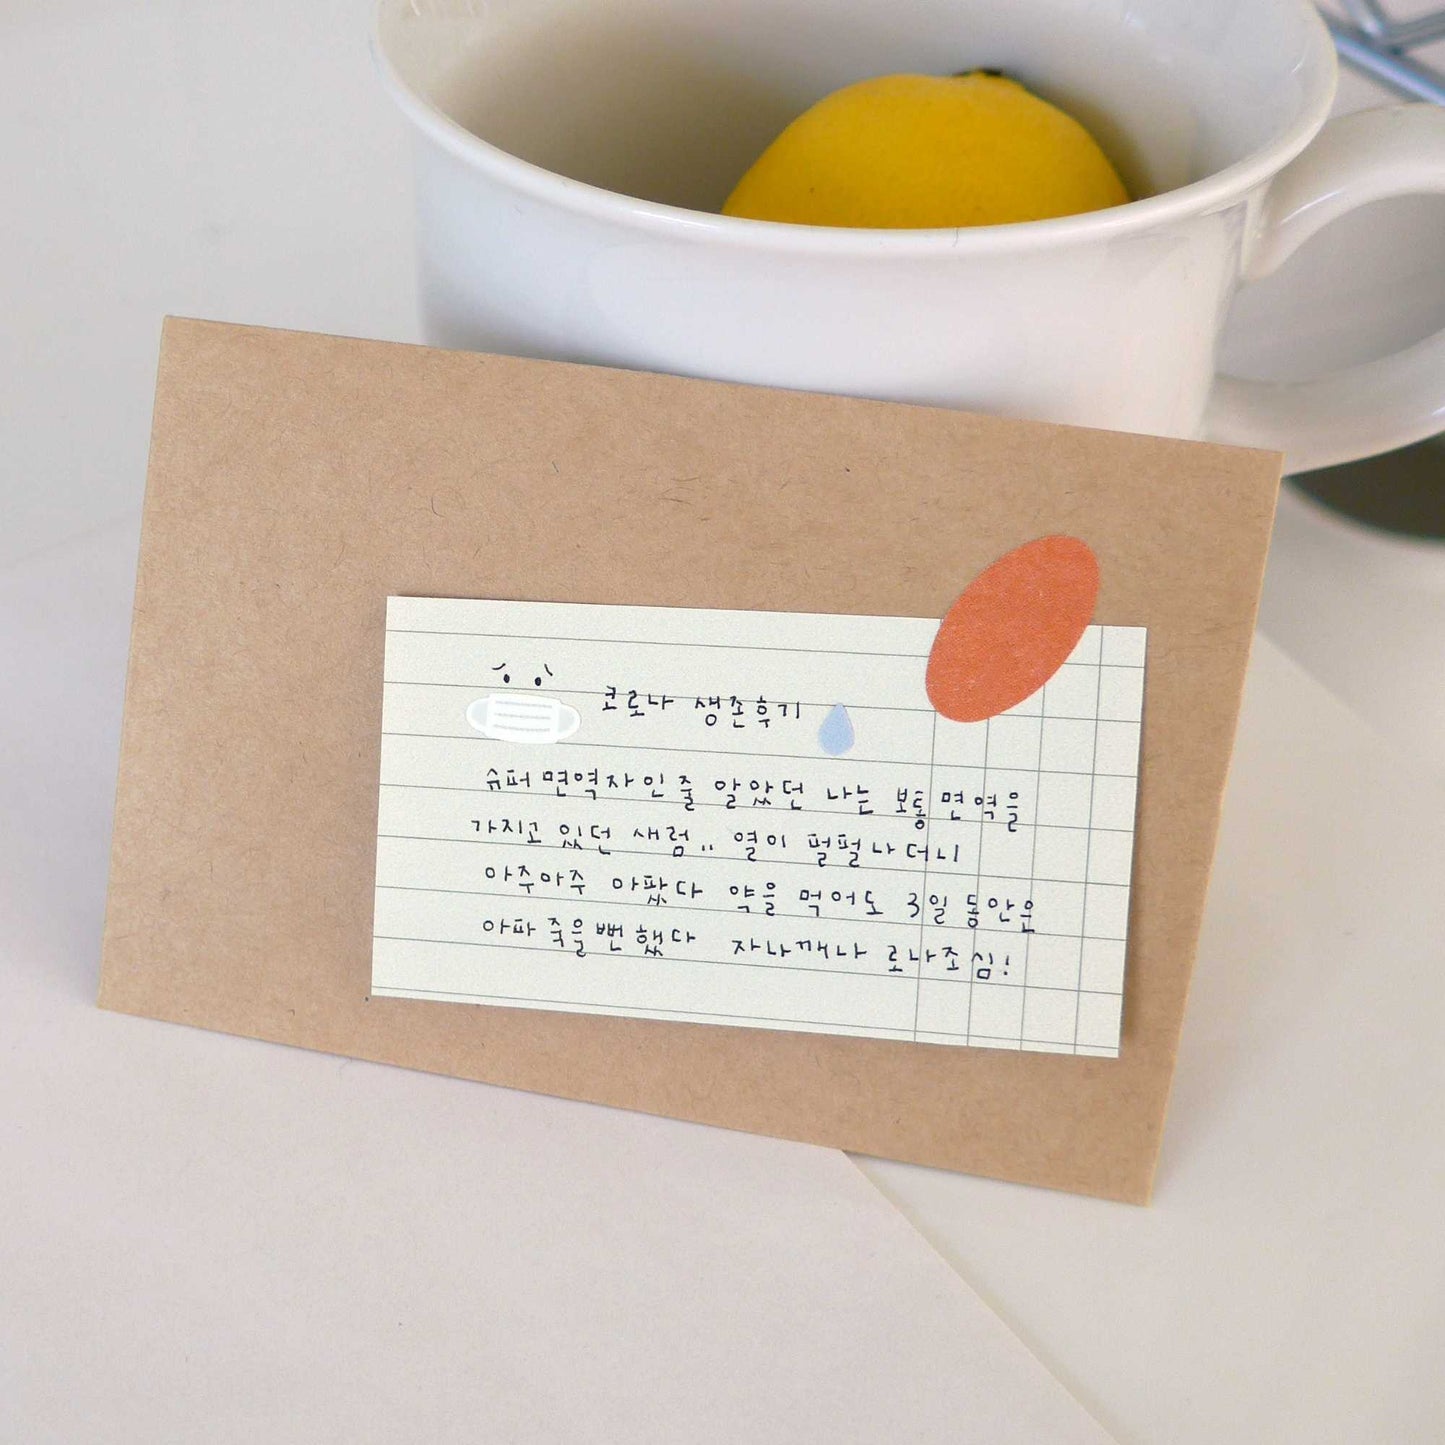 코로나 생존후기
슈퍼면역자인줄 알았던 나는 보통 면역을
가지고 있던 새럼.. 열이 펄펄나더니
아주아주 아팠다 약을 먹어도 3일 동안은
아파 죽을뻔했다 자나깨나 로나조심!